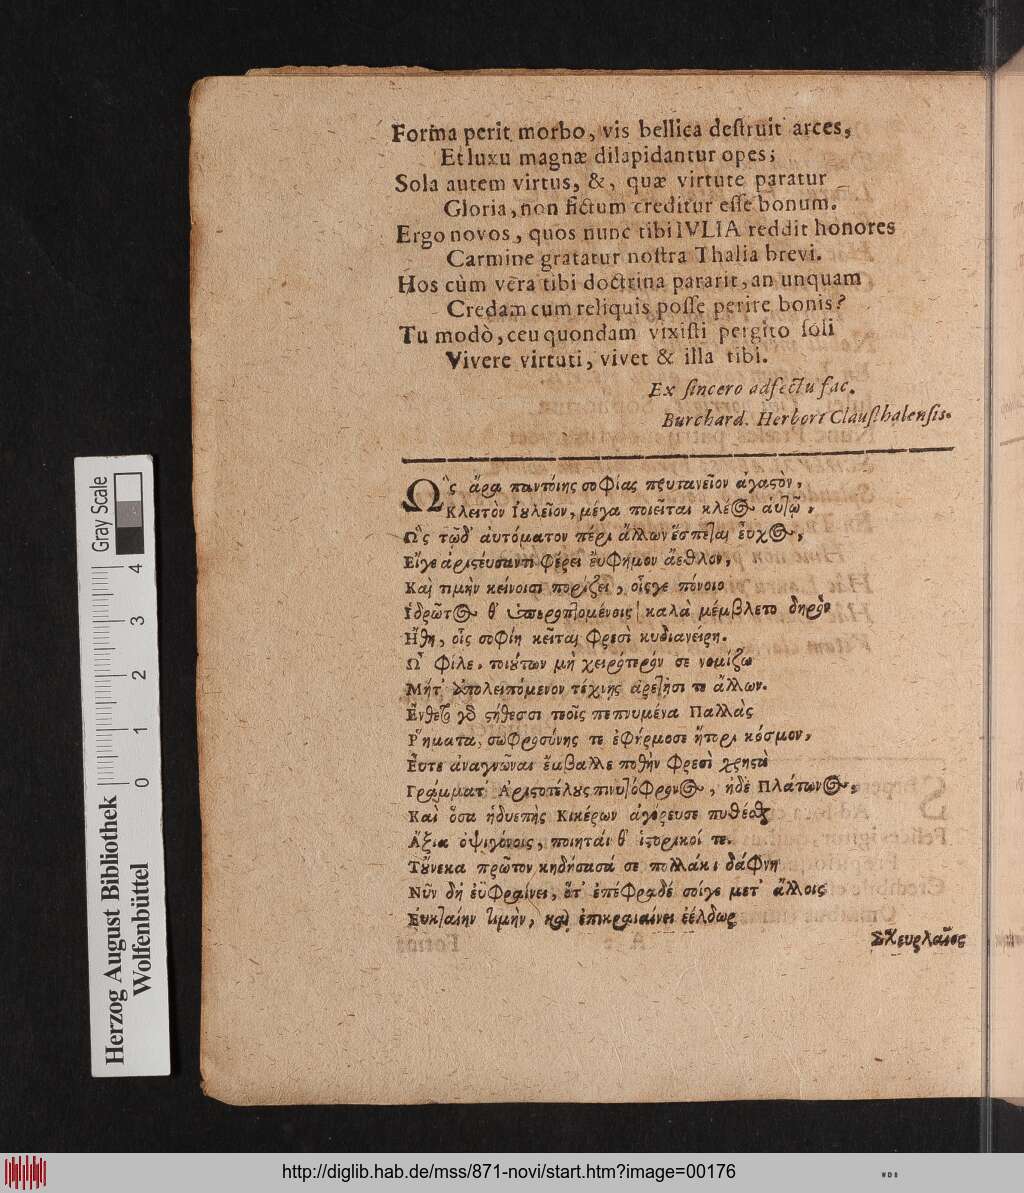 Forma perit morbo, vis bellica destruit arces,
Et luxu magnæ dilapidantur opes;
Sola autem virtus, &, quæ virtute paratur
Gloria, non fictum creditur esse bonum.
Ergo novos, quos nunc tibi IVLIA reddit honores
Carmine gratatur nostra Thalia brevi.
Hos cùm vera tibi doctrina pararit, an unquam
Credam cum reliquis posse perire bonis?
Tu modò, ceu quondam vixisti pergito soli
Vivere virtuti, vivet & illa tibi.
Ex sincero adfectu fac.
Burchard. Herbort Clausthalensis.
Ὣς ἄρα παντοίης σοφίας πρυτανεῖον ἀγαστὸν,
Κλειτὸν Ἰουλεῖον, μέγα ποιεῖται κλέος αὑτῷ,
Ὣς τῷδ' αὐτόματον πέρι ἄλλων ἕσπεται εὖχος,
Εἴγε ἀριστεύσαντι φέρει εὔφημον ἄεθλον,
Καὶ τιμὴν κείνοισι πορίζει, οἷσγε πόνοιο
Ἱδρῶτος θ' καλὰ μέμβλετο δηρὸν
Ἤθη, οἷς σοφίη κεῖται φρεσὶ κυδιανείρη.
Ὦ φίλε, τοιούτων μὴ χειρότερόν σε νομίζω
Μήτ' ἀπολειπόμενον τέχνης ἀρετῇσί τε ἄλλων.
Ἔνθετο γὰρ στήθεσσι τεοῖς πεπνυμένα Παλλὰς
Ῥήματα, σωφροσύνης τε ἐφήρμοσε ἤτορι κόσμον,
Εὖτε ἀναγνῶναι ἔμβαλλε ποθὴν φρεσὶ χρηστὰ
Γράμματ' Ἀριστοτέλους πινυτόφρονος, ἠδὲ Πλάτωνος,
Καὶ ὅσα ἡδυεπὴς Κικέρων ἀγόρευσε πυθέσθαι
Ἄξια ὀψιγόνοις, ποιηταί θ' ἱστορικοί τε.
Τοὔνεκα πρῶτον κηδήσασά σε πολλάκι δάφνη
Νῦν δὴ εὐφραίνει, ὅτ' ἐπέφραδέ σοίγε μετ' ἄλλοις
Εὐκταίην τιμὴν, καὶ ἐπικραιαίνει ἐέλδωρ
Herzog August Bibliothek
Wolfenbüttel
Gray Scale
0 1 2 3 4
http://diglib.hab.de/mss/871-novi/start.htm?image=00176
WDB